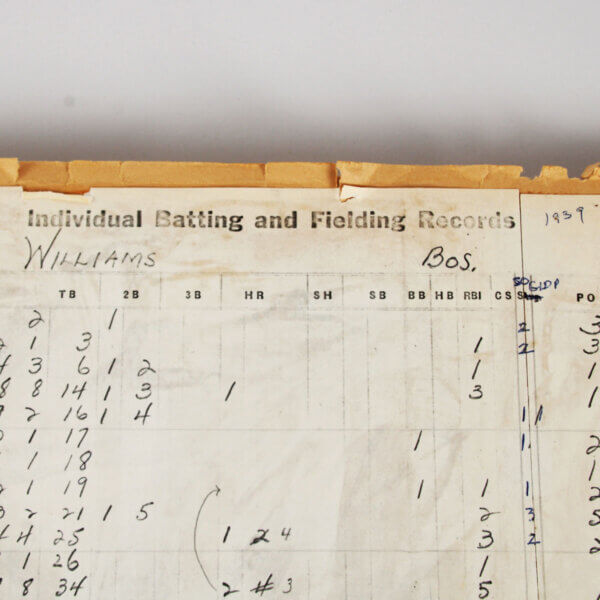 Individual Batting and Fielding Records
1939
WILLIAMS BOS.
SO GIDP
TB 2B 3B HR SH SB BB HB RBI CS PO
2 1 2
1 3 1 2 3
3 6 1 2 1 1
8 8 14 1 3 1 3 1
2 16 1 4 1 1
1 17 1 1 2
1 18 1
1 19 1 1 1 2
2 21 1 5 2 3 5
4 4 25 1 2 4 3 2 2
1 26 1
8 34 2 #3 5